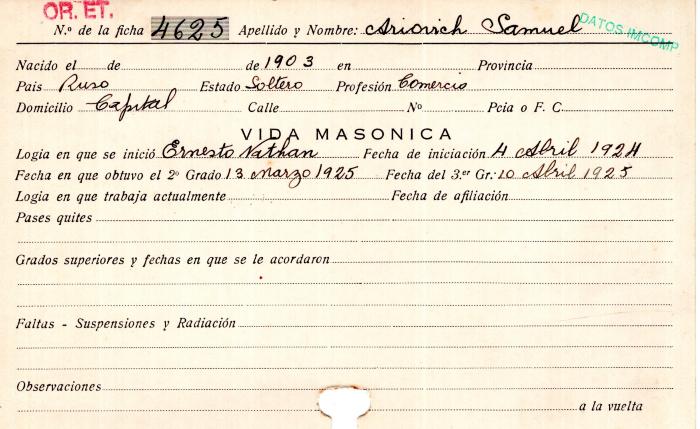 OR. ET.
N.º de la ficha 4625 Apellido y Nombre: Ariovich Samuel
DATOS IMCOMP
Nacido el de de 1903 en Provincia
Pais Ruso Estado Soltero Profesión Comercio
Domicilio Capital Calle Nº Pcia o F. C.
VIDA MASONICA
Logia en que se inició Ernesto Nathan Fecha de iniciación 4 Abril 1924
Fecha en que obtuvo el 2º Grado 13 Marzo 1925 Fecha del 3.er Gr: 10 Abril 1925
Logia en que trabaja actualmente Fecha de afiliación
Pases quites
Grados superiores y fechas en que se le acordaron
Faltas - Suspensiones y Radiación
Observaciones
a la vuelta